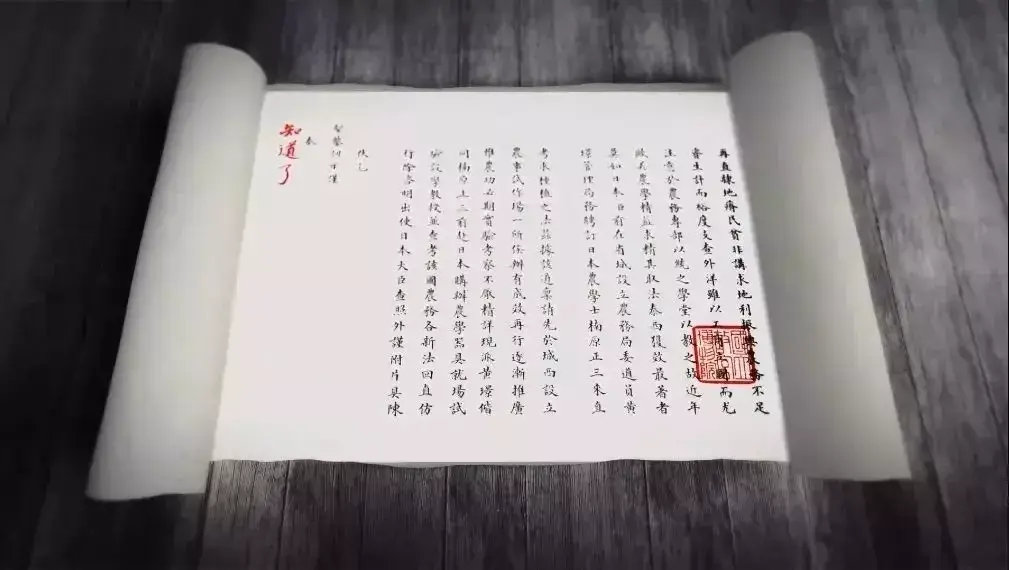 再直隸地瘠民貧非講求地利振興農務不足
睿生計而裕度支查外洋雖以工商立國而尤
注意於農務專部以統之學堂以教之故近年
歐美農學精益求精其取法泰西獲效最著者
莫如日本臣前在省城設立農務局委道員黃
璟管理局務聘訂日本農學士楠原正三來直
考求種植之法茲據該道稟請先於城西設立
農事試作場一所俟辦有成效再行逐漸推廣
惟農功必期實驗考察不厭精詳現派黃璟偕
同楠原正三前赴日本購辦農學器具就場試
驗設學教授並查考該國農務各新法回直仿
行除咨明出使日本大臣查照外謹附片具陳
伏乞
聖鑒訓示謹
奏
知道了